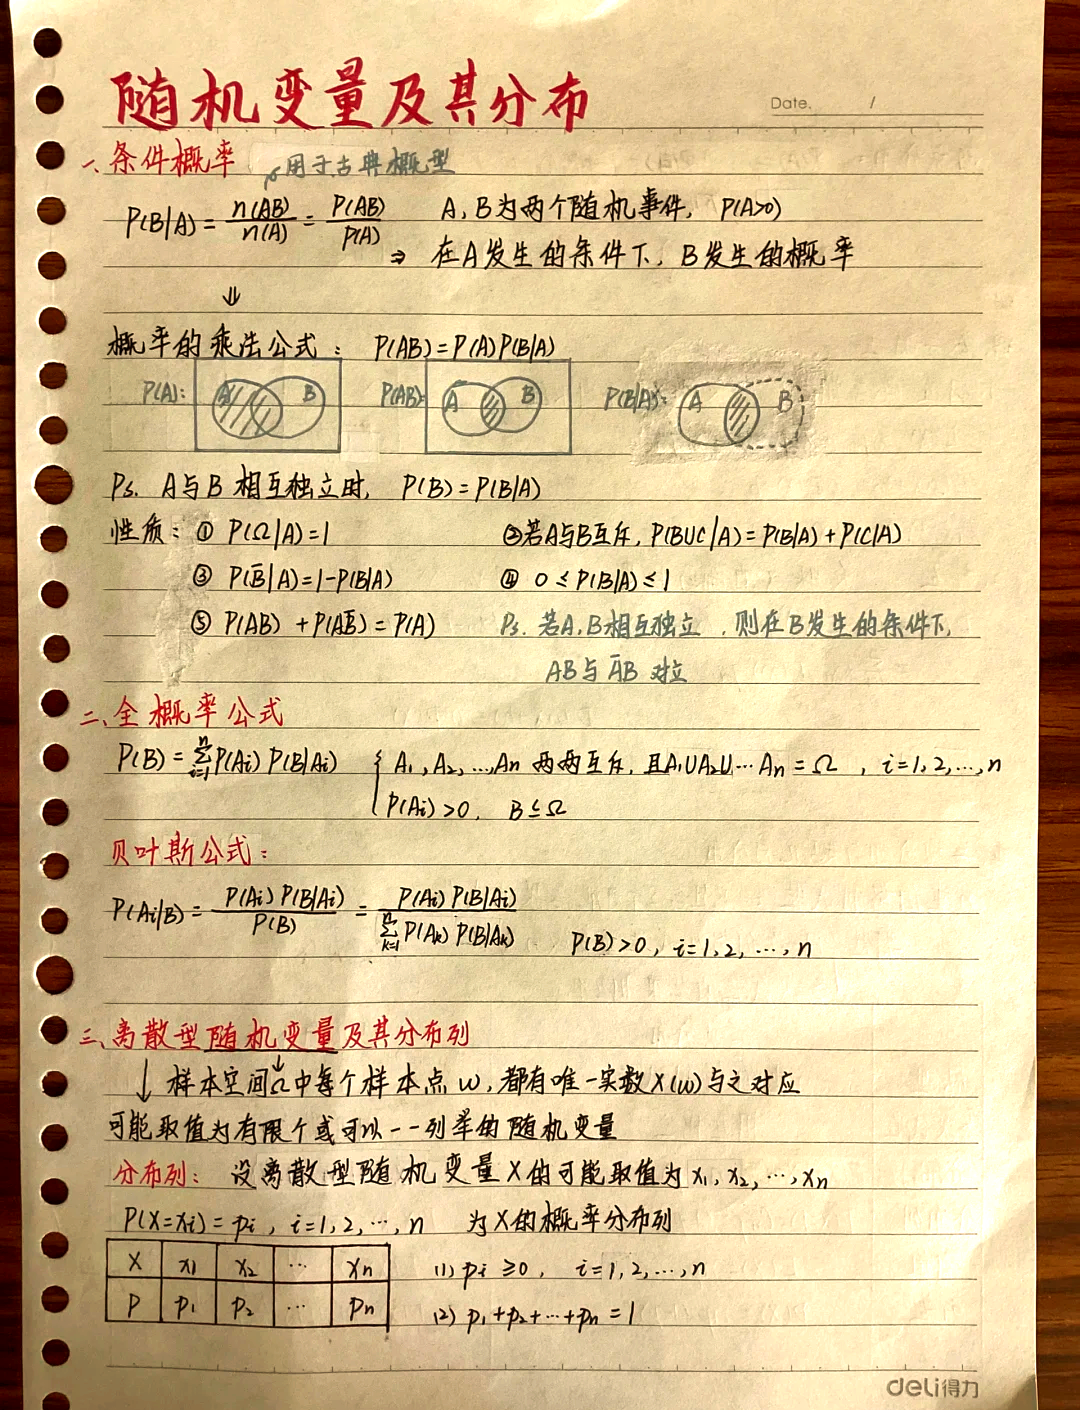 随机变量及其分布
Date. /
一、条件概率 用于古典概型
P(B|A) = n(AB)/n(A) = P(AB)/P(A) A, B为两个随机事件, P(A>0)
⇒ 在A发生的条件下, B发生的概率
⇓
概率的乘法公式: P(AB)=P(A)P(B|A)
P(A): A B P(AB): A B P(B|A): A B
Ps. A与B 相互独立时, P(B)=P(B|A)
性质: ① P(Ω|A)=1 ②若A与B互斥, P(B∪C|A)=P(B|A)+P(C|A)
③ P(B̅|A)=1-P(B|A) ④ 0≤P(B|A)≤1
⑤ P(AB)+P(AB̅)=P(A) Ps. 若A,B相互独立, 则在B发生的条件下,
AB与A̅B 对立
二、全概率公式
P(B)=∑ⁿᵢ₌₁P(Ai)P(B|Ai) { A₁,A₂,…,An 两两互斥, 且A₁∪A₂∪…An=Ω, i=1,2,…,n
P(Ai)>0, B⊆Ω
贝叶斯公式:
P(Ai|B)= P(Ai)P(B|Ai)/P(B) = P(Ai)P(B|Ai)/∑ⁿₖ₌₁P(Ak)P(B|Ak) P(B)>0, i=1,2,…,n
三、离散型随机变量及其分布列
↓ 样本空间Ω中每个样本点w, 都有唯一实数X(w)与之对应
可能取值为有限个或可以一一列举的随机变量
分布列: 设离散型随机变量X的可能取值为x₁,x₂,…,xn
P(X=xi)=pi, i=1,2,…,n 为X的概率分布列
X x₁ x₂ … xn (1) pi≥0, i=1,2,…,n
P p₁ p₂ … pn (2) p₁+p₂+…+pn=1
deli得力